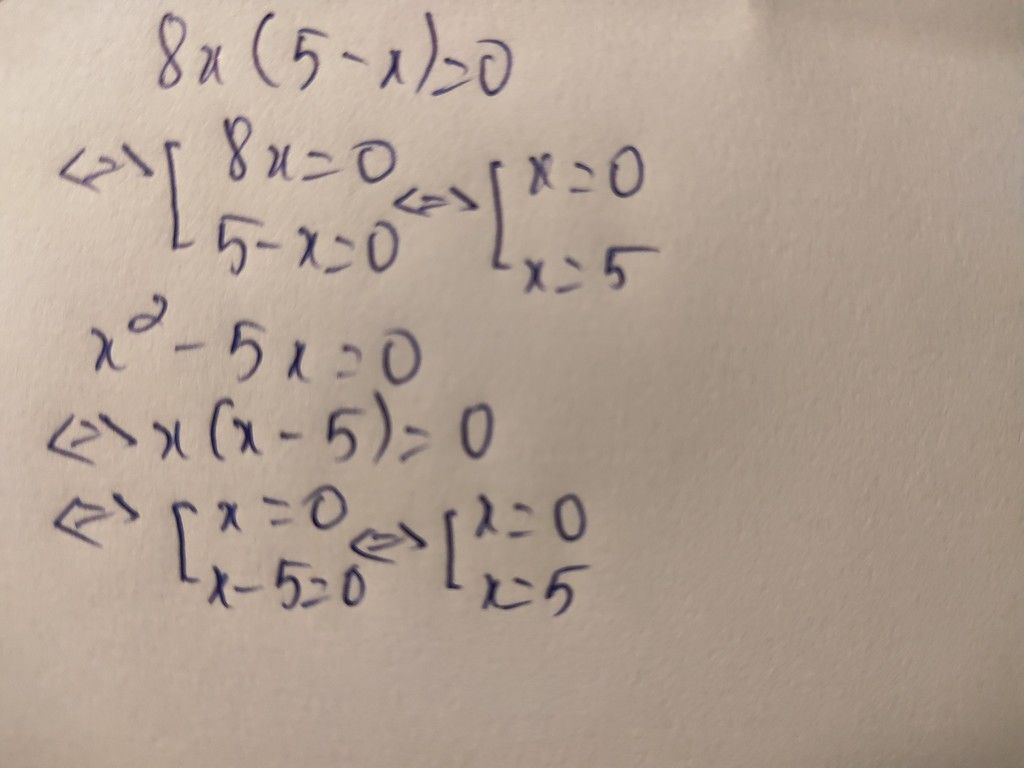 8x(5-x)=0
<=> [ 8x=0 <=> [ x=0
5-x=0 x=5
x² - 5x=0
<=> x(x-5)=0
<=> [ x=0 <=> [ x=0
x-5=0 x=5